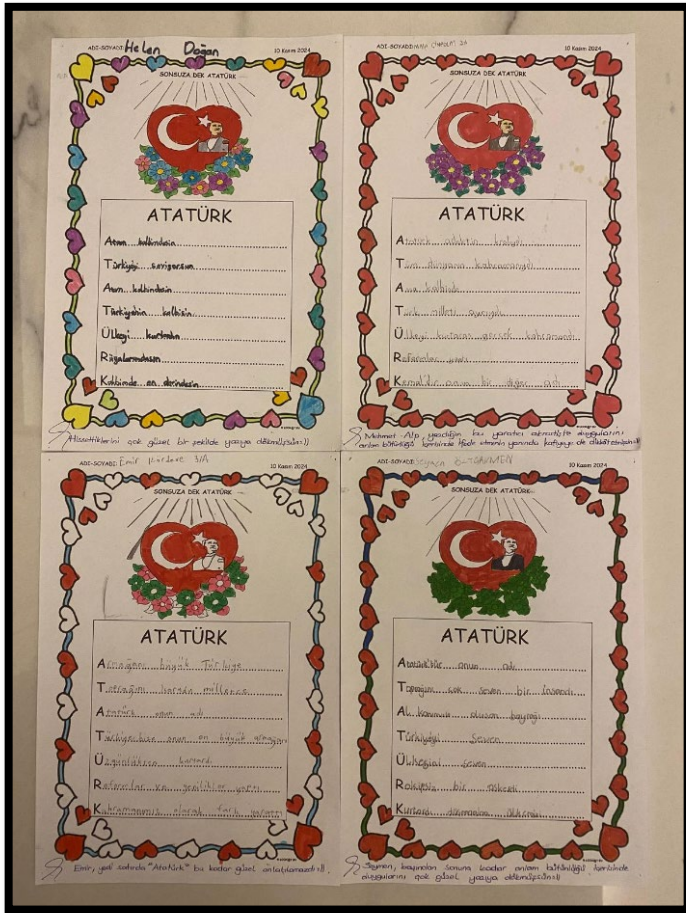 ADI-SOYADI: Helen Doğan 10 Kasım 2024
SONSUZA DEK ATATÜRK
ATATÜRK
Atam kalbimdesin
Türkiyeyi seviyorsun
Atam kalbimdesin
Türkiyenin kalbisin
Ülkeyi kurtardın
Rüyalarımdasın
Kalbimde en derindesin
Hissettiklerini çok güzel bir şekilde yazıya dökmüşsün:))
ADI-SOYADI: 3A 10 Kasım 2024
SONSUZA DEK ATATÜRK
ATATÜRK
Atatürk
Tüm dünyanın kahramanıydı
Ana kalbinde
Türk milleti
Ülkeyi kurtaran gerçek kahramandı
Reformlar yaptı
Kemal'dir onun bir diğer adı
Mehmet Alp yazdığın bu yaratıcı akrostişte duygularını
anlam bütünlüğü içerisinde ifade etmenin yanında kafiyeye de dikkat etmişsin:))
ADI-SOYADI: Emir 3/A 10 Kasım 2024
SONSUZA DEK ATATÜRK
ATATÜRK
Armağanı büyük Türkiye
Atatürk onun adı
Türkiye bize onun en büyük armağanı
Reformlar ve yenilikler yaptı
Kahramanımız olarak tarih yazdı
Emir, yedi satırda "Atatürk" bu kadar güzel anlatılamazdı:)).
ADI-SOYADI: 10 Kasım 2024
SONSUZA DEK ATATÜRK
ATATÜRK
Atatürk'tür onun adı
Toprağını çok seven bir insandı
Al kanımızla oluşan bayrağı
Türkiyeyi seven
Ülkesini seven
Rakipsiz bir askerdi
Kurtardı düşmandan ülkemizi
Seymen, başından sonuna kadar anlam bütünlüğü içerisinde
duygularını çok güzel yazıya dökmüşsün:))